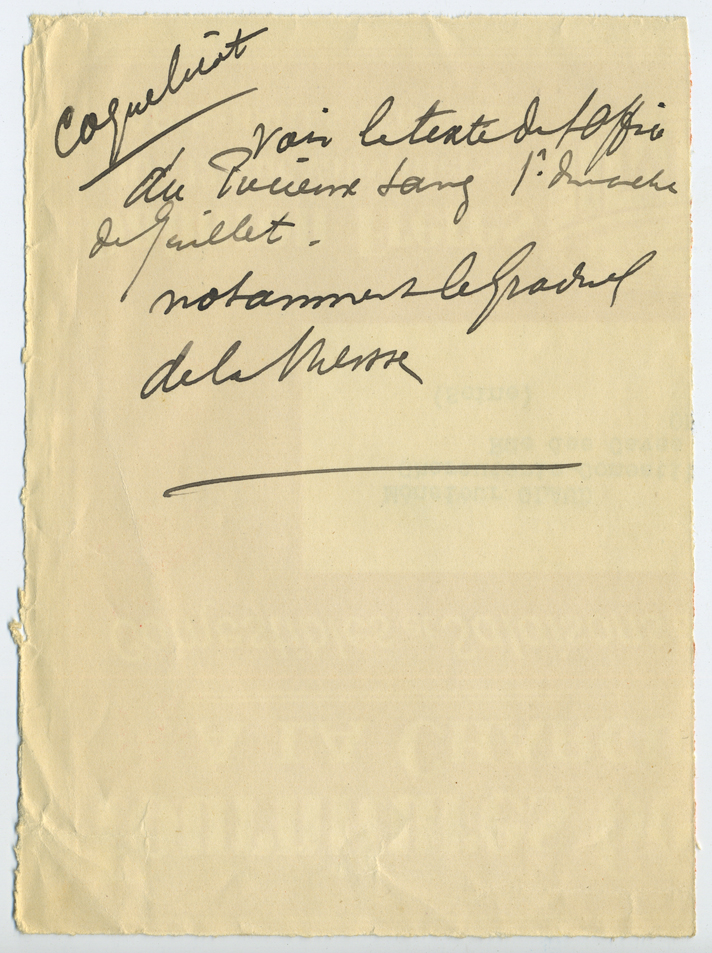 Coquelicot
Voir le texte de l'Office
du Précieux Sang 1er dimanche
de Juillet.
notamment le Graduel
de la Messe